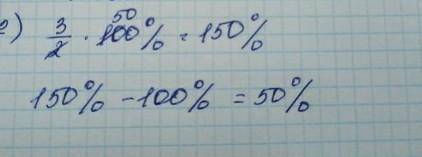 2) 3/2 · 100% = 150%
50
150% - 100% = 50%